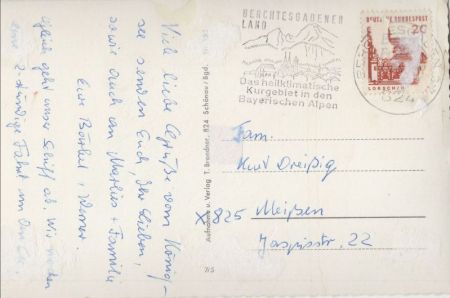 Viele liebe Grüße vom König-
see senden Euch, Ihr Lieben,
sowie auch an Marlies + Familie
Eure Bärbel, Werner.
geht unser Schiff ab. Wir machen
eine 2-stündige Fahrt um den See.
Aufnahme u. Verlag T. Brandner, 824 Schönau / Bgd.
7/5
BERCHTESGADENER
LAND
Das heilklimatische
Kurgebiet in den
Bayerischen Alpen
DEUTSCHE BUNDESPOST
20
LORSCH/
824
Fam.
Kurt Dreißig
X825 Meißen
Jaspisstr. 22